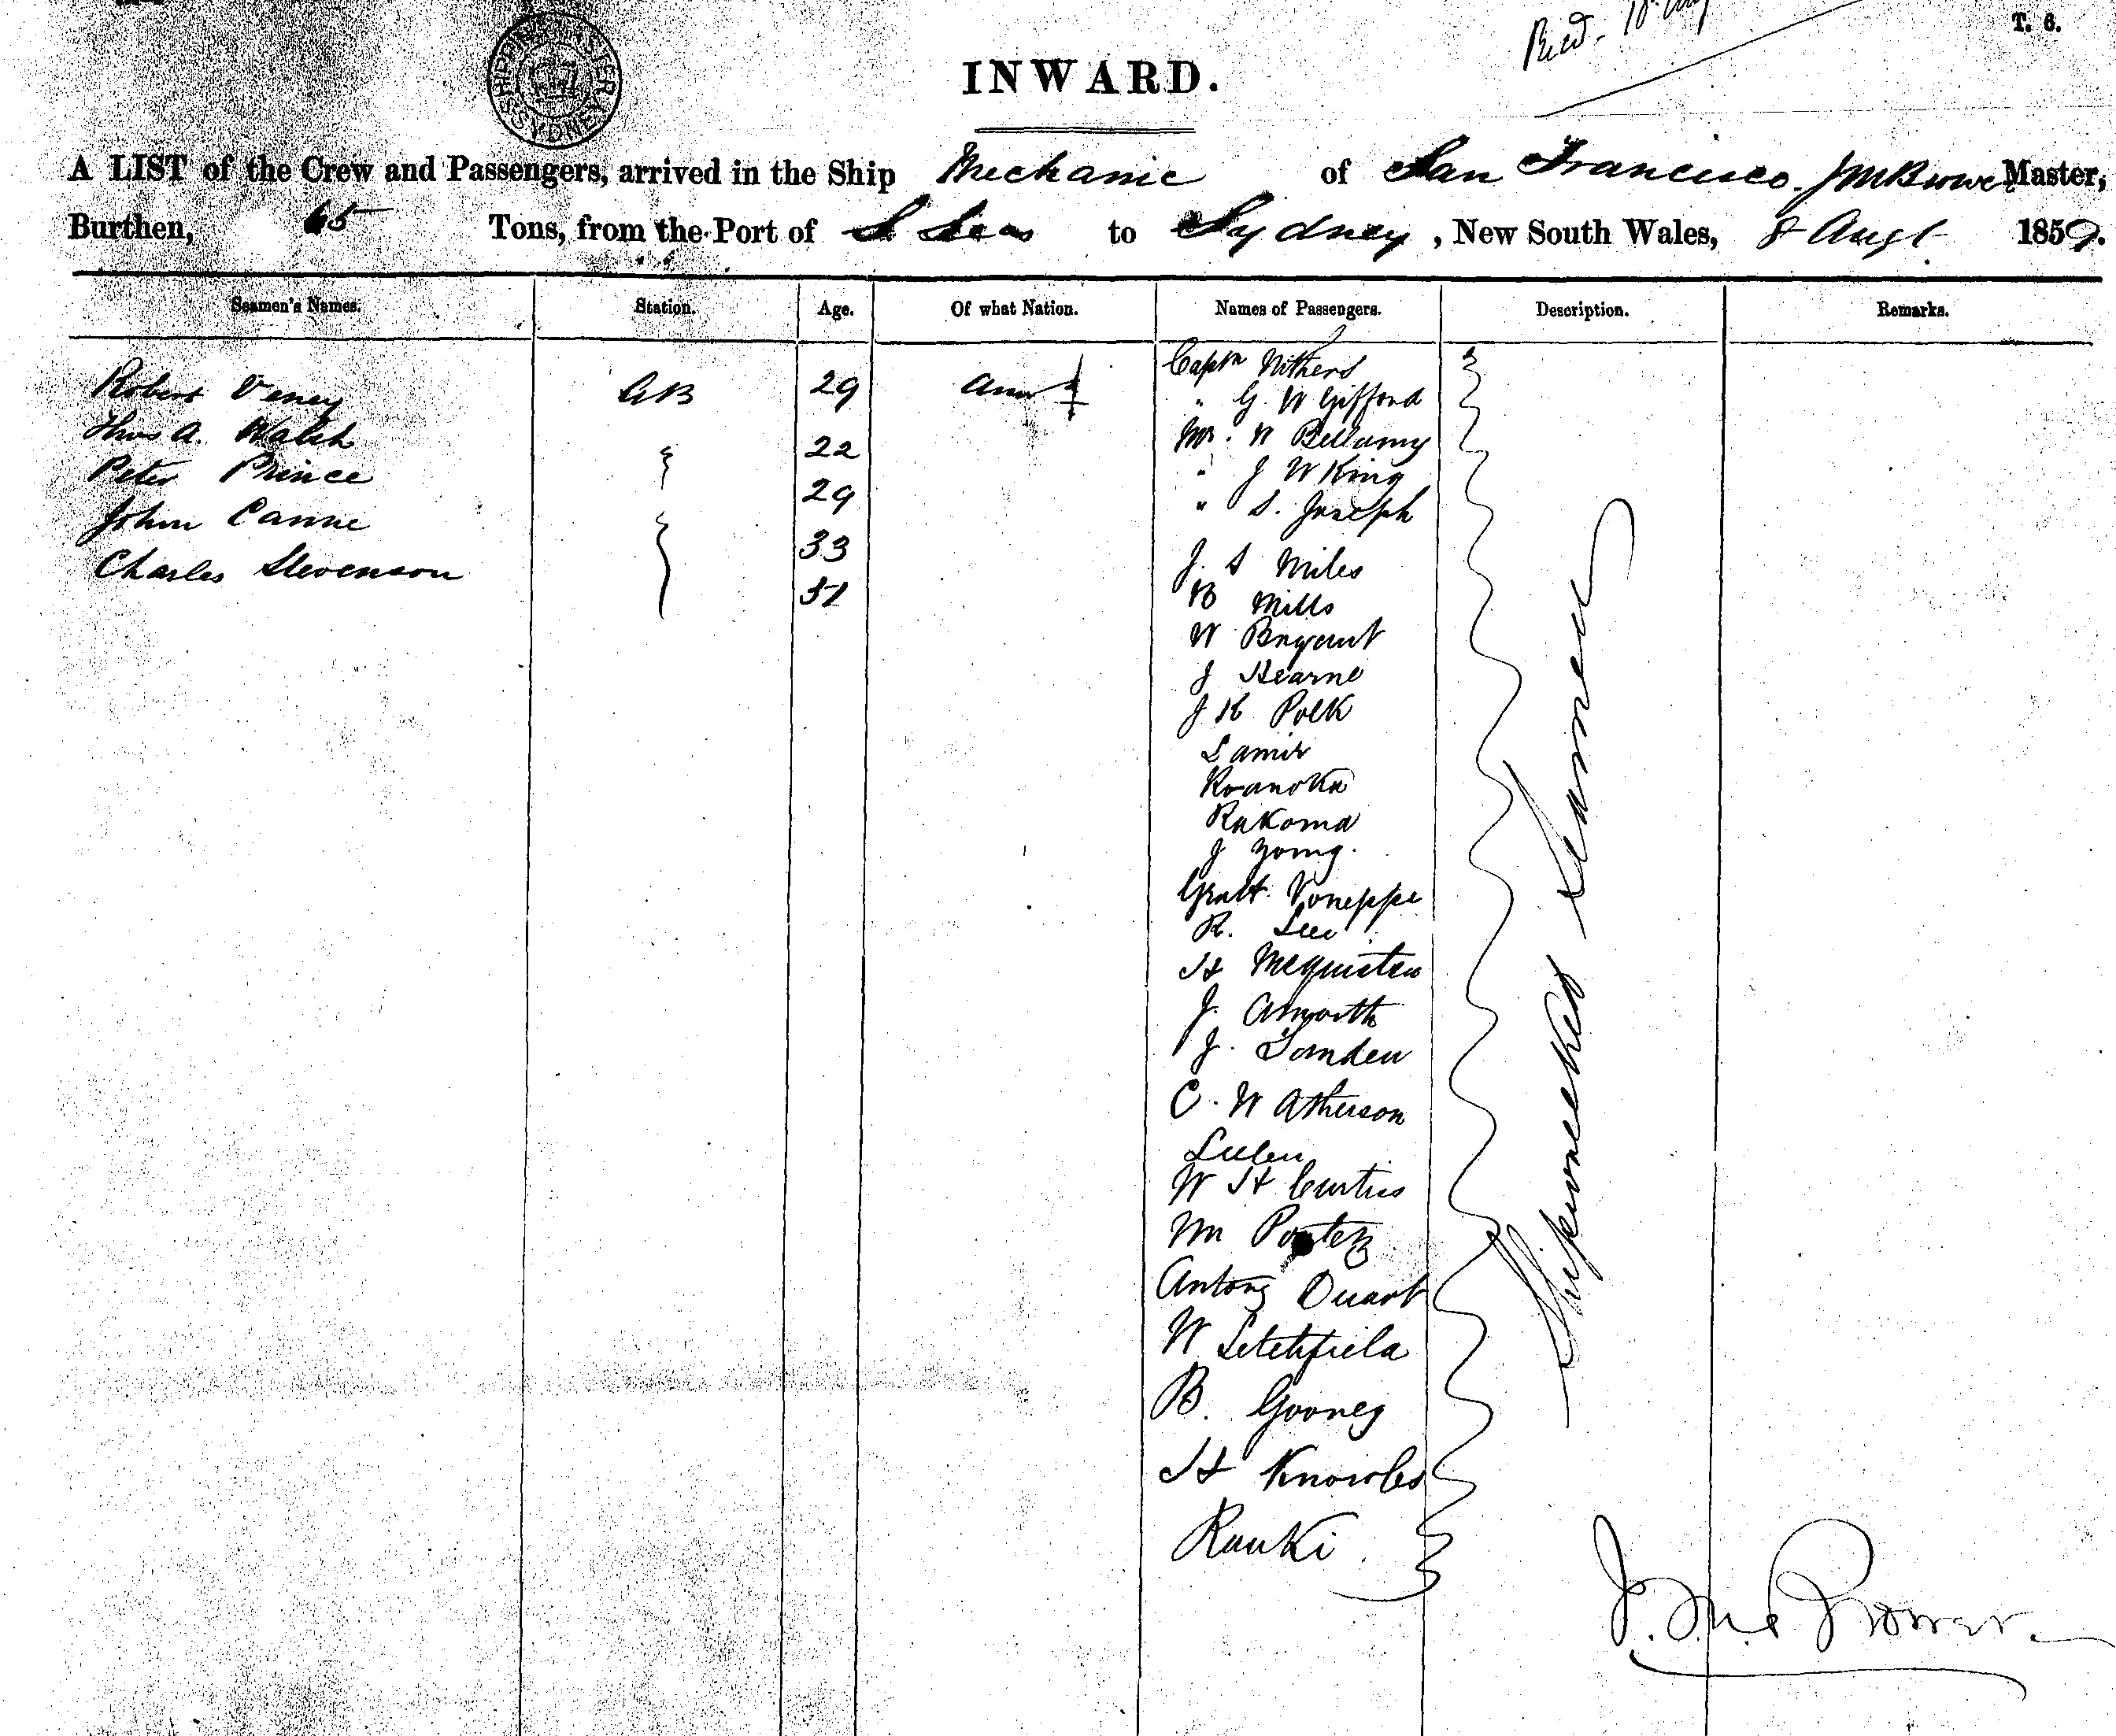 T. 6.
SHIPPING MASTERS SYDNEY
Recd. 10 Aug
INWARD.
A LIST of the Crew and Passengers, arrived in the Ship Mechanic of San Francisco. J M Brower Master,
Burthen, 65 Tons, from the Port of S Seas to Sydney, New South Wales, 8 Augt 1859.
Seamen's Names. Station. Age. Of what Nation. Names of Passengers. Description. Remarks.
Robert Veney AB 29 Am
Thos A. Walsh 22
Peter Prince 29
John Canne 33
Charles Stevenson 31
Captn Withers
" G. W Gifford
Mr. W Bellamy
" J W King
" S. Joseph
J. S Miles
B Mills
W Bryant
J Hearne
J K Polk
Samir
Roanoka
Rakoma
J Yong.
Gratt Voneppe
R. Lee
H McQuisten
J.
J.
C. W Atherson
W H Curtis
Mr Porter
Antony Duart
W Letchfield
B. Gooney
H Knowles
Rauki
Shipwrecked Seamen
J. M. Brower